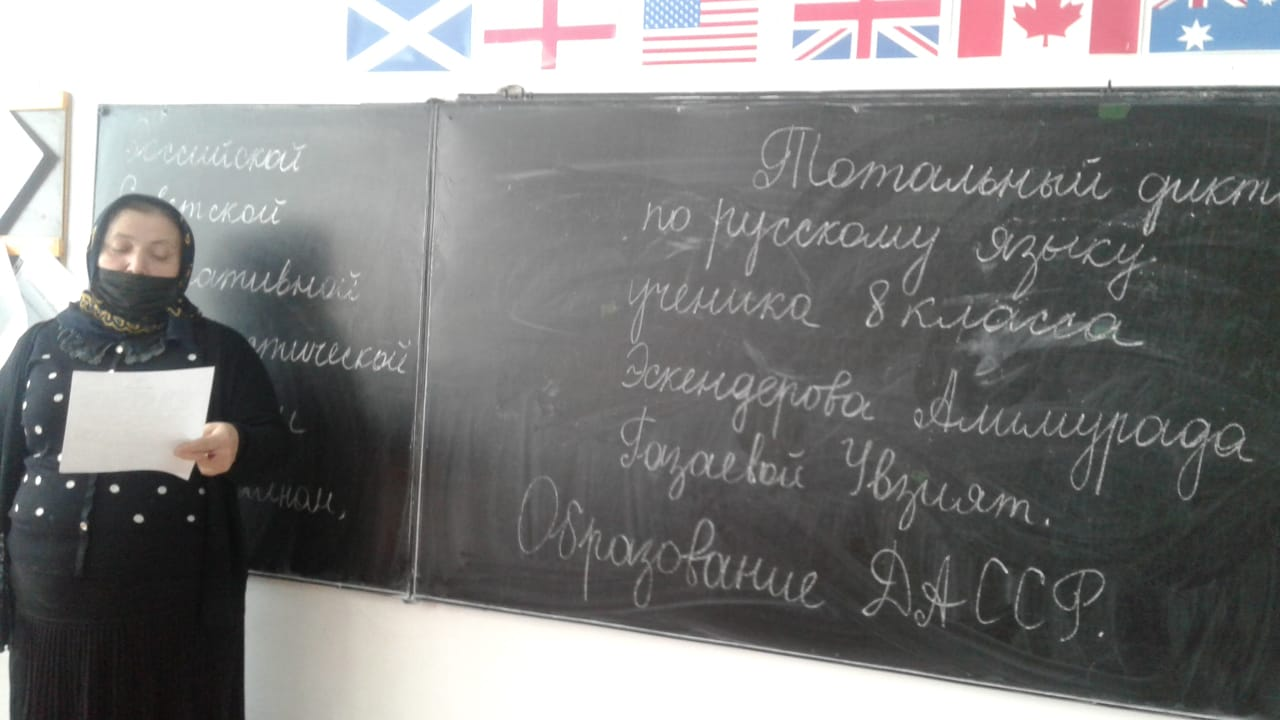 Российской
Советской
ативной
стической
и
Тотальный дикт
по русскому языку
ученика 8 класса
Эскендерова Алимурада
Газаевой Увзият.
Образование ДАССР.